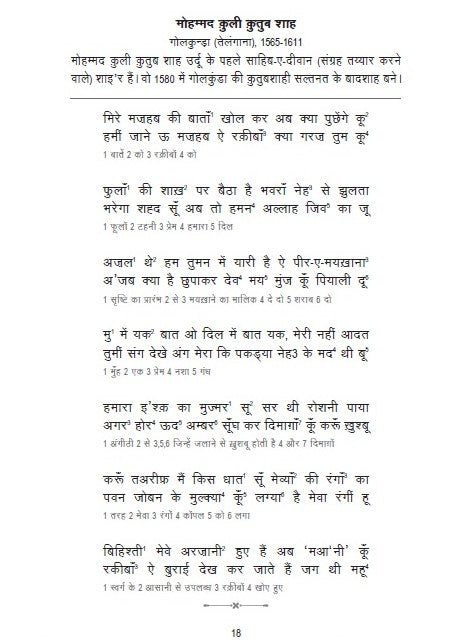 मोहम्मद क़ुली क़ुतुब शाह
गोलकुन्ड़ा (तेलंगाना), 1565-1611
मोहम्मद क़ुली क़ुतुब शाह उर्दू के पहले साहिब-ए-दीवान (संग्रह तय्यार करने
वाले) शाइ'र हैं। वो 1580 में गोलकुंडा की क़ुतुबशाही सल्तनत के बादशाह बने।
मिरे मज़हब की बाताँ¹ खोल कर अब क्या पुछेंगे कू²
हमीं जाने ऊ मज़हब ऐ रक़ीबाँ³ क्या गरज़ तुम कू⁴
1 बातें 2 को 3 रक़ीबों 4 को
फुलाँ¹ की शाख़² पर बैठा है भवराँ नेह³ से झुलता
भरेगा शह्द सूँ अब तो हमन⁴ अल्लाह जिव⁵ का जू
1 फूलों 2 टहनी 3 प्रेम 4 हमारा 5 दिल
अज़ल¹ थे² हम तुमन में यारी है ऐ पीर-ए-मयख़ाना³
अ'जब क्या है छुपाकर देव⁴ मय⁵ मुंज कूँ पियाली दू⁶
1 सृष्टि का प्रारंभ 2 से 3 मयख़ाने का मालिक 4 दे दो 5 शराब 6 दो
मु¹ में यक² बात ओ दिल में बात यक, मेरी नहीं आदत
तुमीं संग देखे अंग मेरा कि पकड्या नेह3 के मद⁴ थी बू⁵
1 मुँह 2 एक 3 प्रेम 4 नशा 5 गंध
हमारा इ'श्क़ का मुज्मर¹ सू² सर थी रोशनी पाया
अगर³ होर⁴ ऊद⁵ अम्बर⁶ सूँघ कर दिमाग़ाँ⁷ कूँ करूँ ख़ुश्बू
1 अंगीठी 2 से 3,5,6 जिन्हें जलाने से ख़ुशबू होती है 4 और 7 दिमाग़ों
करूँ तअरीफ़ मैं किस धात¹ सूँ मेव्याँ² की रंगाँ³ का
पवन जोबन के मुल्क्या⁴ कूँ⁵ लग्या⁶ है मेवा रंगीं हू
1 तरह 2 मेवा 3 रंगों 4 कोंपल 5 को 6 लगा
बिहिश्ती¹ मेवे अरज़ानी² हुए हैं अब 'मआ'नी' कूँ
रक़ीबाँ³ ऐ बुराई देख कर जाते हैं जग थी महू⁴
1 स्वर्ग के 2 आसानी से उपलब्ध 3 रक़ीबों 4 खोए हुए
18